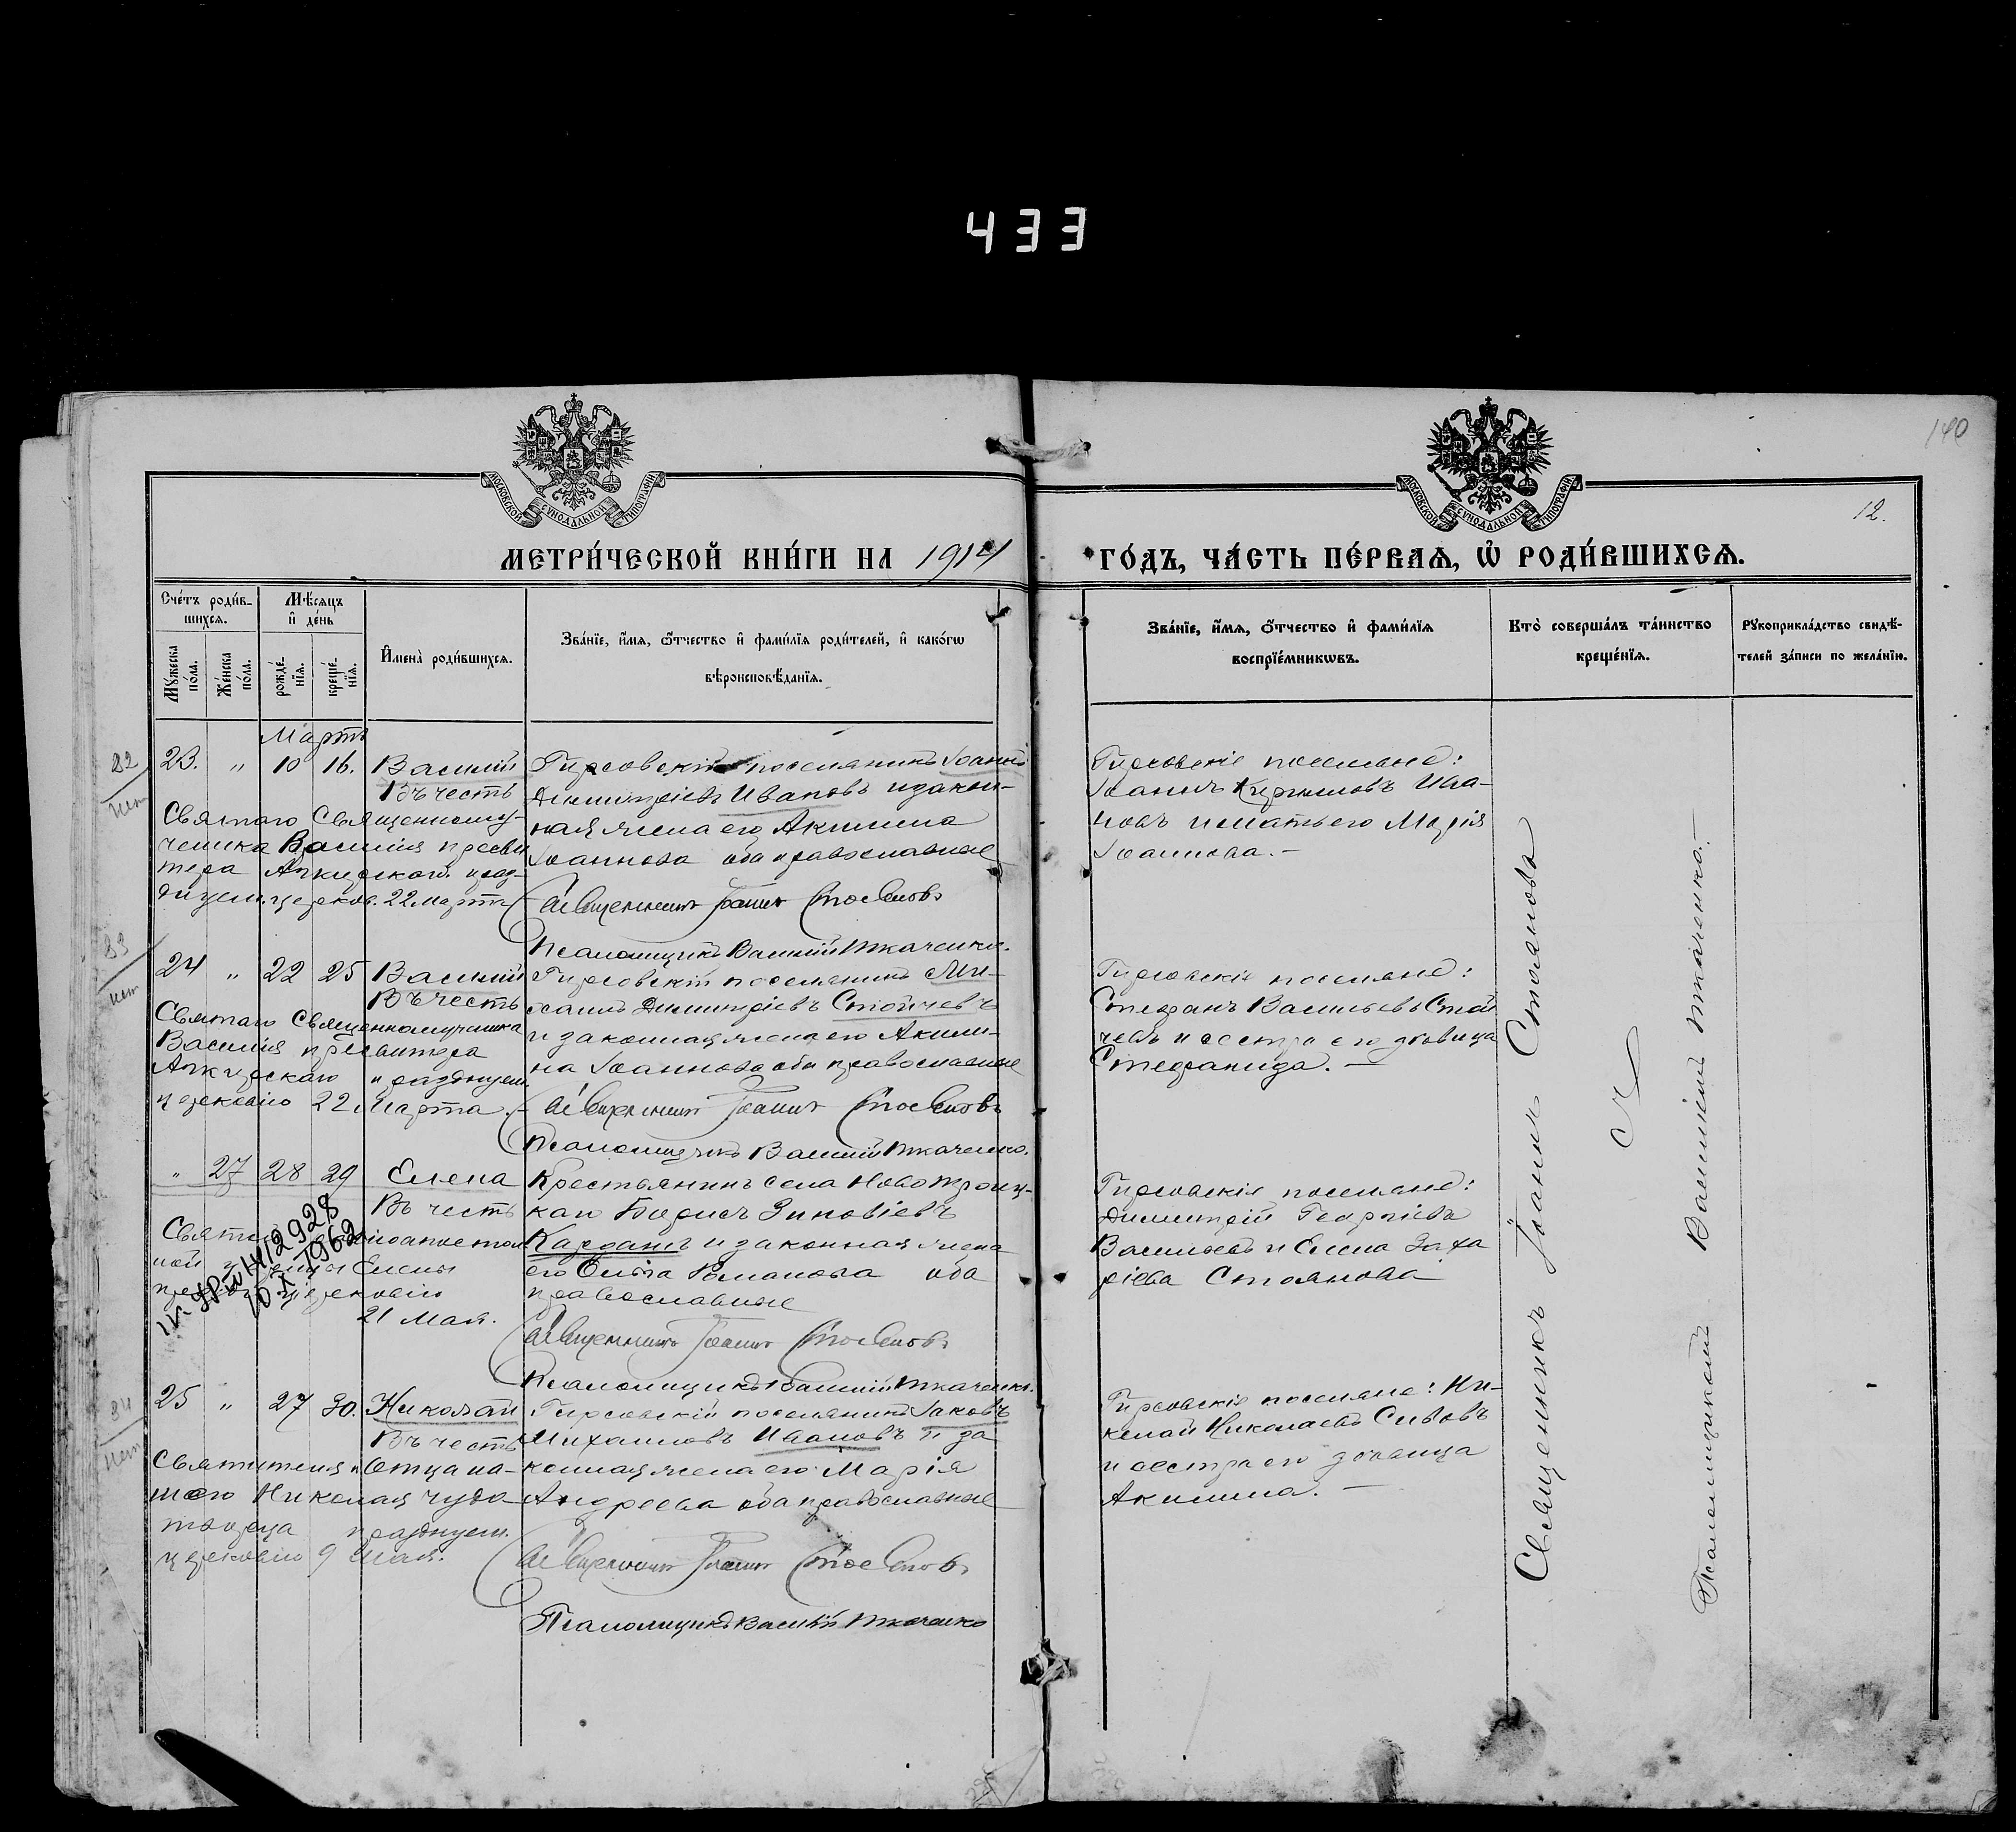 433
140
12.
МОСКОВСКОЙ СѴНОДАЛЬНОЙ ТИПОГРАФІИ
МОСКОВСКОЙ СѴНОДАЛЬНОЙ ТИПОГРАФІИ
МЕТРИ́ЧЕСКОЙ КНИ́ГИ НА 1914 ГО́ДЪ, ЧА́СТЬ ПЕ́РВАѦ, Ѡ҆ РОДИ́ВШИХСѦ.
Сче́тъ роди́в-
шихсѧ.
Мꙋ́жеска по́ла.
Же́нска по́ла.
Мѣ́сѧцъ
и҆ де́нь
рожде́-
нїѧ.
креще́-
нїѧ.
И҆мена̀ роди́вшихсѧ.
Зва́нїе, и҆́мѧ, ѻ҆́тчество и҆ фами́лїѧ роди́телей, и҆ како́гѡ
вѣроисповѣ́данїѧ.
Зва́нїе, и҆́мѧ, ѻ҆́тчество и҆ фами́лїѧ
воспрїе́мникѡвъ.
Кто̀ соверша́лъ та́инство
креще́нїѧ.
Рꙋкоприкла́дство свидѣ́-
телей за́писи по жела́нїю.
Мартъ
82
нет
23. " 10 16. Василій
Въ честь
Святаго Священному-
ченика Василія пресви
тера Анкирскаго празд-
дуем. церков. 22 марта
Гирсовскій поселянинъ Іоаннъ
Димитріевъ Ивановъ и закон-
ная жена его Акилина
Іоаннова оба православные
Священникъ Іоаннъ Стояновъ
Псаломщикъ Василій Ткаченко.
Гирсовскіе поселяне:
Іоаннъ Кирилловъ Ива-
новъ и мать его Марія
Іоаннова.-
83
нет
24 " 22 25 Василій
Въ честь
Святаго Священномученика
Василія пресвитера
Анкирскаго празднуем.
церковію 22 Марта.
Гирсовскій поселянинъ Ми-
хаилъ Димитріевъ Стойчевъ
и законная жена его Акили-
на Іоаннова оба православные
Священникъ Іоаннъ Стояновъ
Псаломщикъ Василій Ткаченко.
Гирсовскіе поселяне:
Стефанъ Васильевъ Стой
чевъ и сестра его дѣвица
Стефанида. -
" 27 28 29 Елена
Въ честь
Святой равноапостол
ной царицы Елены
церковію
21 Мая.
14/2928
10 I 1962
Крестьянинъ села Новотроиц-
каго Борисъ Зиновіевъ
Карданъ и законная жена
его Ольга Романова оба
православные
Священникъ Іоаннъ Стояновъ
Псаломщикъ Василій Ткаченко.
Гирсовскіе поселяне:
Димитрій Георгіевъ
Васильевъ и Елена Заха
ріева Стоянова
84
нет
25 " 27 30. Николай
Въ честь
Святителя и Отца на-
шего Николая чудо-
творца празднуем.
церковію 9 мая.
Гирсовскій поселянинъ Іаковъ
Михаиловъ Ивановъ и за
конная жена его Марія
Андреева оба православные
Священникъ Іоаннъ Стояновъ
Псаломщикъ Василій Ткаченко
Гирсовскіе поселяне: Ни-
колай Николаевъ Сивовъ
и сестра его дѣвица
Акилина. -
Священникъ Іоаннъ Стояновъ
Псаломщикомъ Василіемъ Ткаченко.-